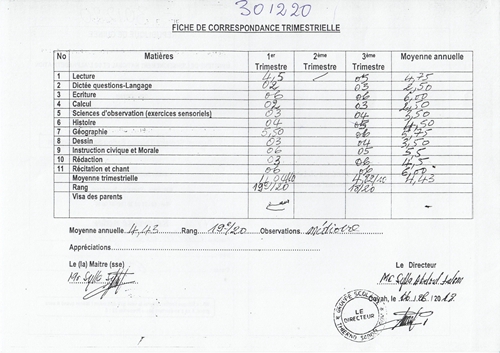 301220
FICHE DE CORRESPONDANCE TRIMESTRIELLE
No Matières 1er Trimestre 2ème Trimestre 3ème Trimestre Moyenne annuelle
1 Lecture 4,5 05 4,75
2 Dictée questions-Langage 02 03 2,50
3 Ecriture 06 06 6,00
4 Calcul 02 03 2,50
5 Sciences d'observation (exercices sensoriels) 03 04 3,50
6 Histoire 04 05 4,50
7 Géographie 5,50 06 5,75
8 Dessin 03 04 3,50
9 Instruction civique et Morale 06 05 5,5
10 Rédaction 03 06 4,5
11 Récitation et chant 06 06 6,00
Moyenne trimestrielle 4,43
Rang 19e/20
Visa des parents
Moyenne annuelle 4,43 Rang 19e/20 Observations médiocre
Appréciations
Le (la) Maitre (sse) Le Directeur
Mr Sylla Mr Sylla
LE DIRECTEUR